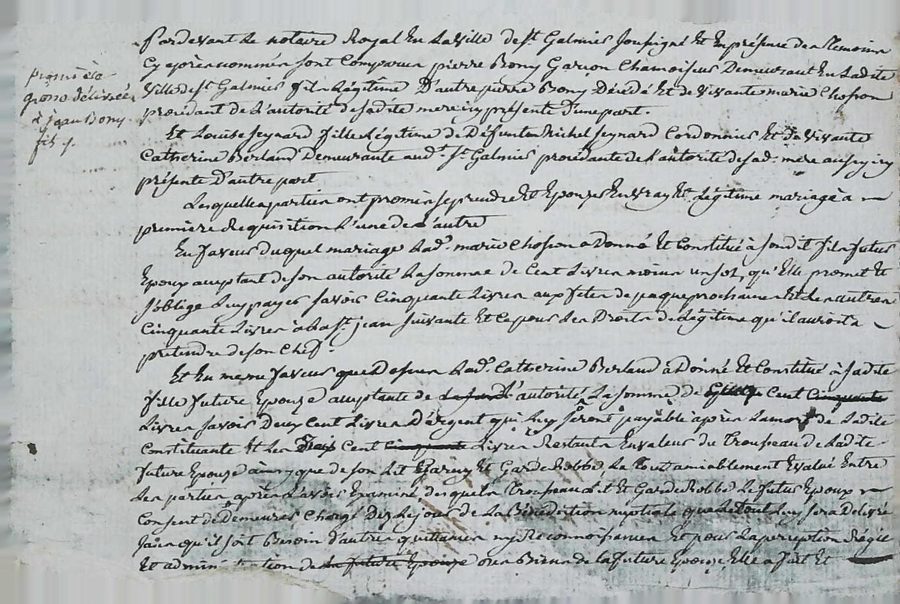 premiere
grosse délivrée
à jean Bony
fils
Pardevant Le notaire Royal En La Ville de St Galmier soussigné Et En présence des Temoins
Cy après nommés sont Comparus pierre Bony Garçon Chamoiseur Demeurant En Ladite
Ville de St Galmier fils Légitime D'autre pierre Bony Décédé Et de Vivante marie Chosson
procédant de L'autorité de sadite mere icy présente D'une part.
Et Louise peynard fille Légitime de Défunt Michel peynard Cordonnier Et de Vivante
Catherine Berland Demeurante aud. St Galmier procédante de L'autorité de sad. mere aussy icy
présente D'autre part
Lesquelles parties ont promis se prendre Et Epouser En Vray Et Légitime mariage à
première Requisition L'une de L'autre
En faveur duquel mariage Lad. marie Chosson a Donné Et Constitué à sondit fils futur
Epoux acceptant de son autorité La somme de Cent Livres moins un sol, qu'Elle promet Et
s'oblige Luy payer savoir Cinquante Livres aux fêtes de paque prochaines Et Les autres
Cinquante Livres à La St jean suivante Et Ce pour ses Droits de Légitime qu'il auroit à
prétendre de son Chef.
Et En meme faveur que Dessus Lad. Catherine Berland a Donné Et Constitué à sadite
fille future Epouze acceptante de L'autorité La somme de Cent Cinquante
Livres savoir Deux Cent Livres D'argent qui Luy seront payable après La mort de Ladite
Constituante Et Les Cent Cinquante Livres Restants En valeur de Trousseau de Ladite
future Epouze ainsy que de son Lit Et Garde Robbe Le Tout amiablement Evalué Entre
Les parties après L'avoir Examiné desquels Trousseau Lit Et Garde Robbe Le futur Epoux
Consent de Demeurer Chargé Dez Le jour de La Bénédiction nuptiale que Le Tout Luy sera Delivré
sans qu'il soit Besoin d'autre quittance ny Reconnoissance Et pour La perception Régie
Et administration de La future Epouze des Biens de La future Epouze Elle a fait Et